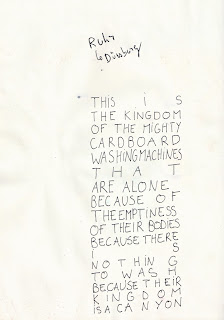 THIS IS
THE KINGDOM
OF THE MIGHTY
CARDBOARD
WASHING MACHINES
THAT
ARE ALONE
BECAUSE OF
THE EMPTINESS
OF THEIR BODIES
BECAUSE THERE
IS
NOTHING
TO WASH
BECAUSE THEIR
KINGDOM
IS A CANYON